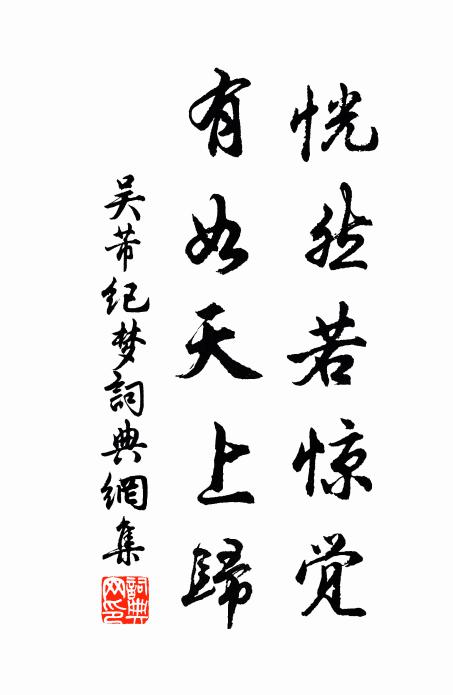 恍然若惊觉
有如天上歸
吴芾纪梦詞典網集
詞典网印